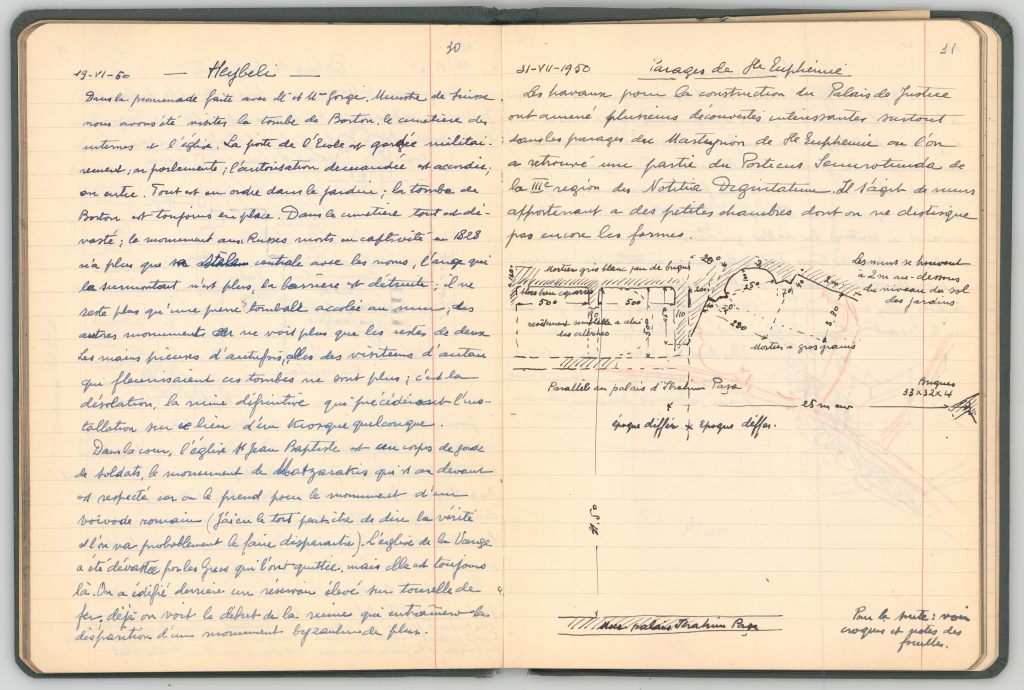 30
19-VI-50 — Heybeli —
Dans la promenade faite avec Mr et Mme Gorgé, Ministre de Suisse
nous avons été visiter la tombe de Borton, le cimetière des
internes et l'église. La porte de l'Ecole est gardée militai-
rement; on parlemente; l'autorisation demandée est accordée,
on entre. Tout est en ordre dans le jardin; la tombe de
Borton est toujours en place. Dans le cimetière tout est dé-
vasté; le monument aux Russes morts en captivité en 1828
n'a plus que sa stèle centrale avec les noms, l'ange qui
la surmontait n'est plus, la barrière est détruite; il ne
reste plus qu'une pierre tombale accolée au mur, des
autres monuments on ne voit plus que les restes de deux
Les mains pieuses d'autrefois, celles des visiteurs d'antan
qui fleurissaient ces tombes ne sont plus; c'est la
désolation, la ruine définitive qui précèdent l'ins-
tallation sur ce lieu d'un Kiosque quelconque.
Dans la cour, l'église St Jean Baptiste est un corps de garde
de soldats, le monument de Matzarakis qui est au devant
est respecté car on le prend pour le monument d'un
voivode romain (J'ai eu le tort peut être de dire la vérité
et l'on va probablement le faire disparaitre). L'église de la Vierge
a été dévastée par les Grecs qui l'ont quittée, mais elle est toujours
là. On a édifié derrière un réservoir élevé sur tourelle de
fer, déjà on voit le début de la ruine qui entrainera la
disparition d'un monument byzantin de plus.
31
31-VII-1950 Parages de Ste Euphémie
Les travaux pour la construction du Palais de Justice
ont amené plusieurs découvertes intéressantes surtout
dans les parages du Martyrion de Ste Euphémie ou l'on
a retrouvé une partie du Porticus Semerotunda de
la IIIe region des Notitia Dignitatum. Il s'agit de murs
appartenant a des petites chambres dont on ne distingue
pas encore les formes.
Mortier gris blanc peu de brique
Les murs se trouvent
à 2m au-dessous
du niveau du sol
des jardins
500
500
110
250
280
5.20
revêtement semblable a celui
des citernes
Mortier a gros grains
Parallèle au palais d'Ibrahim Paşa
Briques
33x32x4
25 m env
époque differ. x Epoque differ.
Mur Palais Ibrahim Paşa
Pour la suite: voir
croquis et notes des
fouilles.